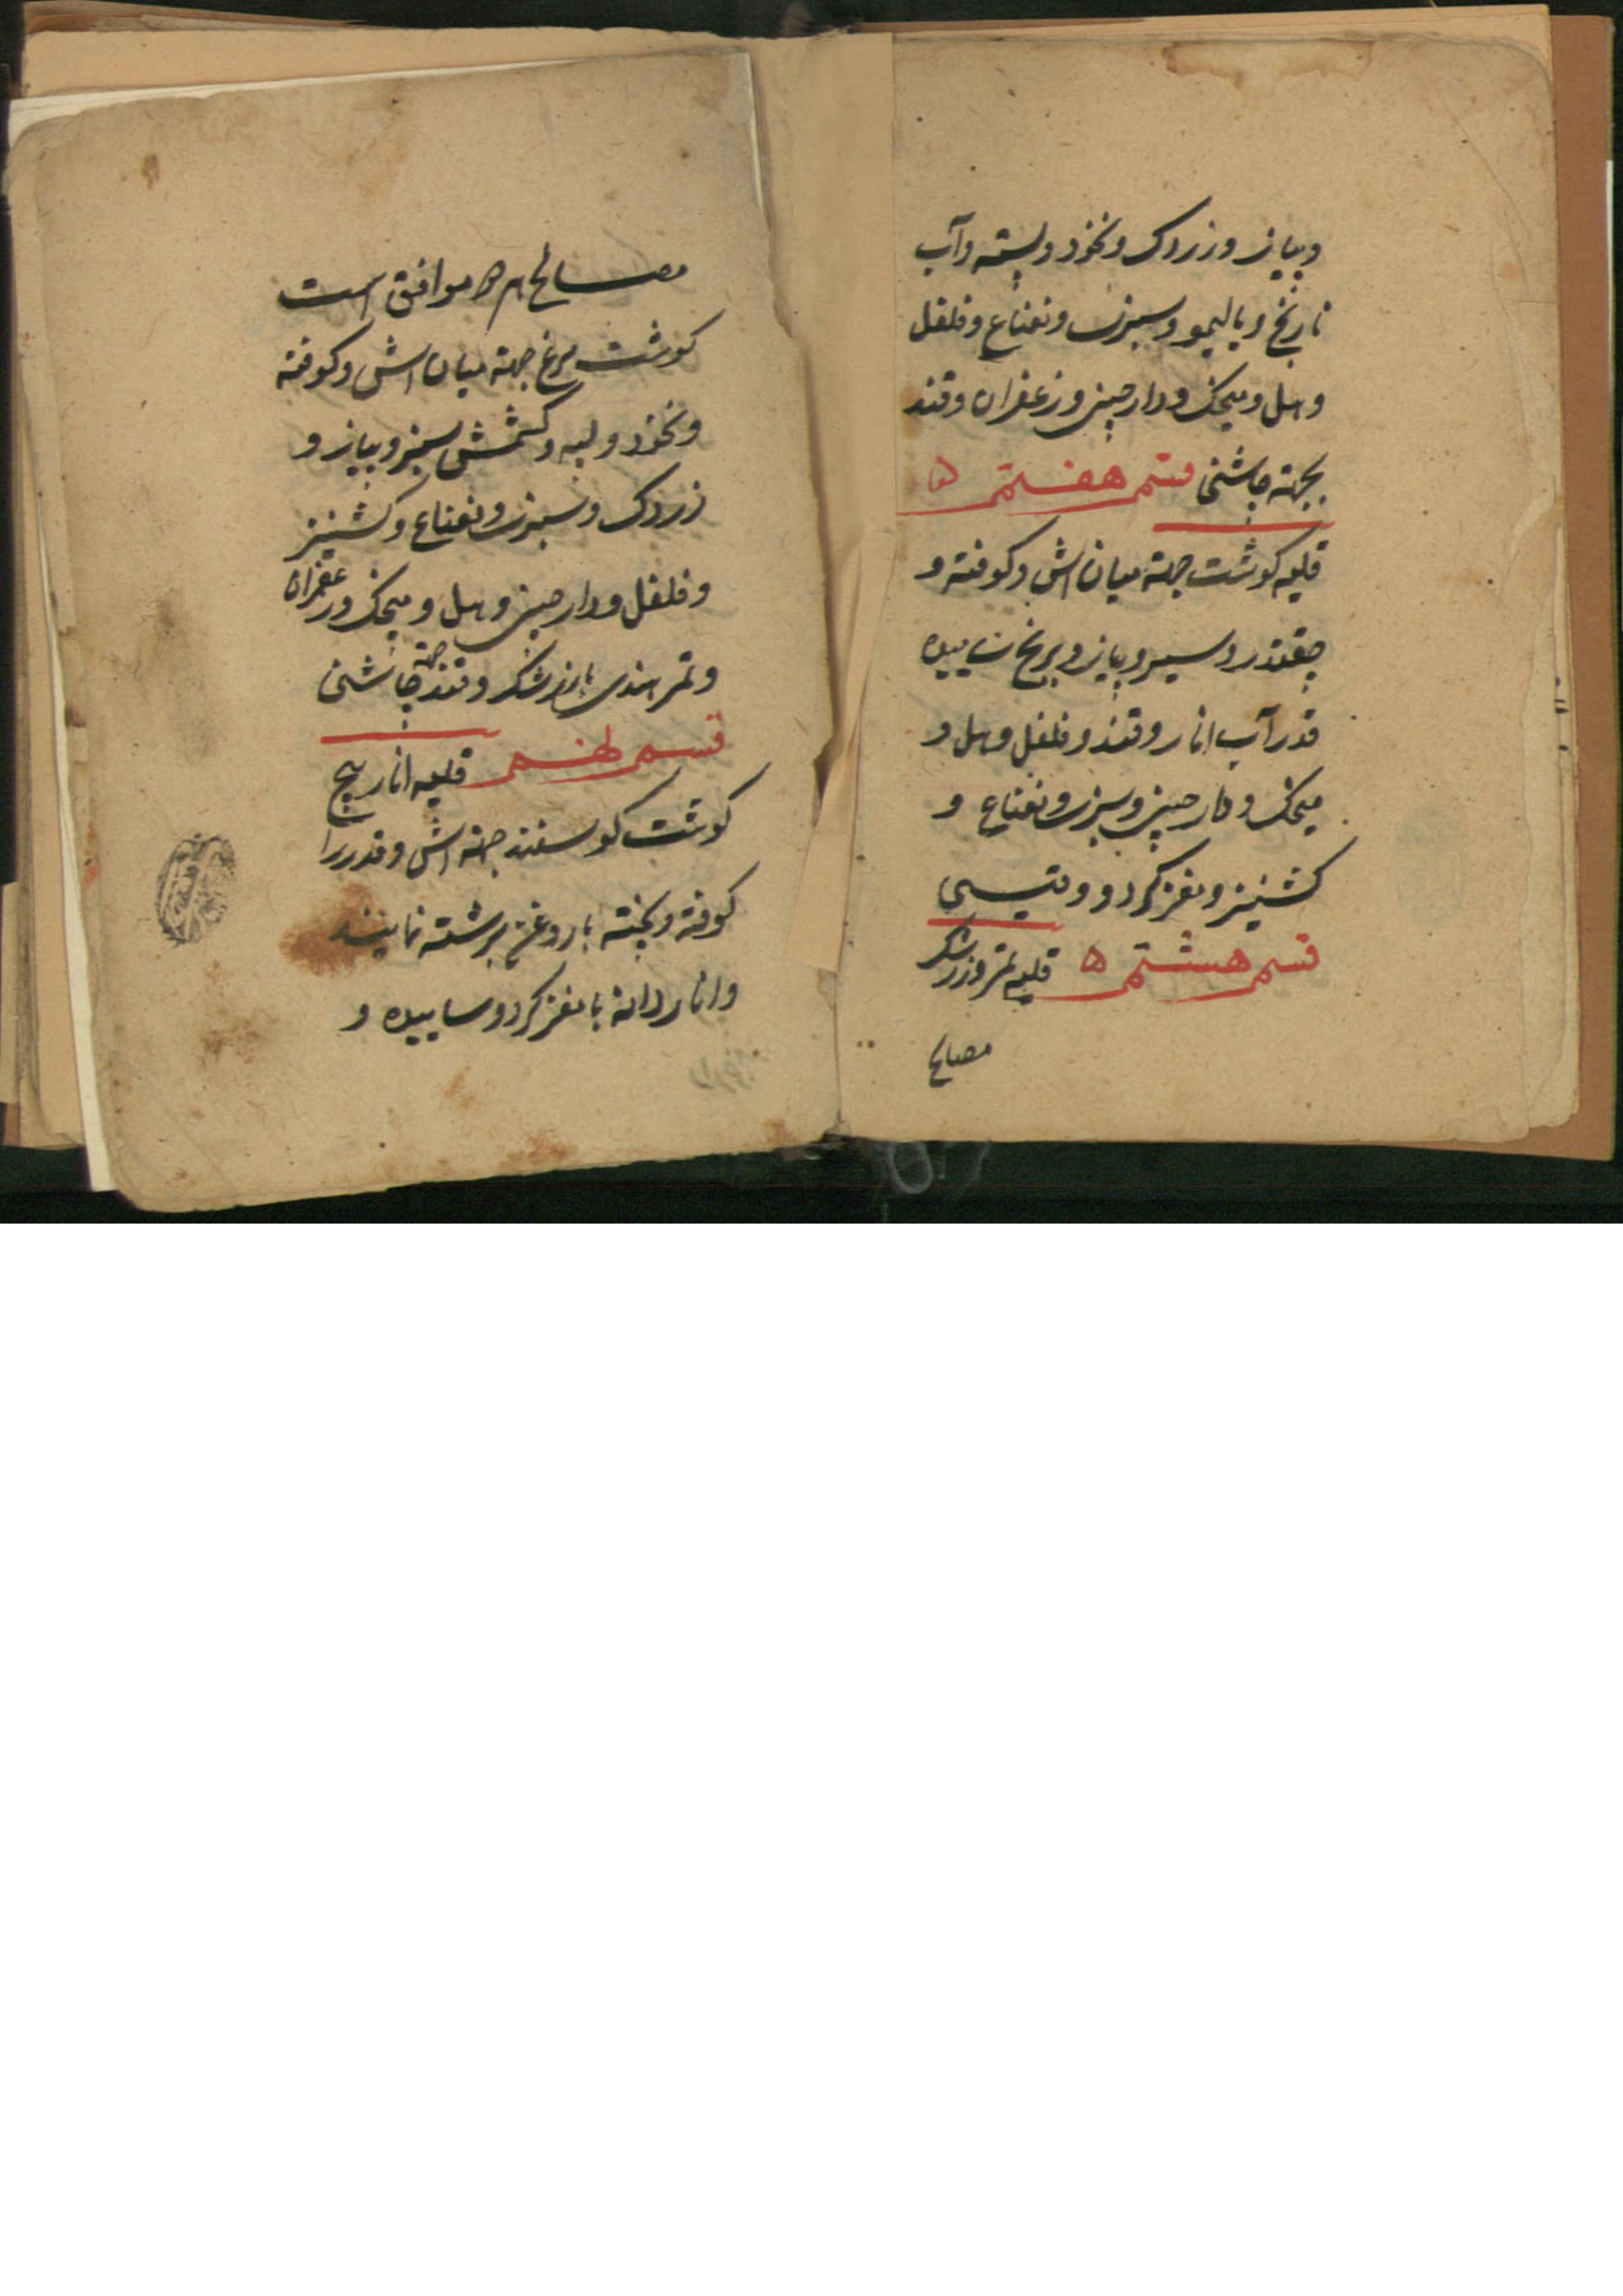 و پیاز و زردک و نخود و پسته و آب
نارنج و یا لیمو و سبزی و نعناع و فلفل
و هل و میخک و دارچینی و زعفران و قند
بجهته چاشنی قسم هفتم ۵
قلیه کوشت جهته میان اش و کوفته و
چقندر و سیر و پیاز و برنج ساییده
قدر آب انار و قند و فلفل و هل و
میخک و دارچینی و سبزی و نعناع و
کشنیز و مغز کردو و
قسم هشتم ۵ قلیه تمر و زرشک
مصالح
مصالح موافق است
کوشت مرغ جهته میان اش و کوفته
و نخود و لپه و کشمش سبز و پیاز و
زردک و سبزی و نعناع و کشنیز
و فلفل و دارچینی و هل و میخک و زعفران
و تمر هندی با زرشک و قند جهته چاشنی
قسم نهم قلیه انار پیچ
کوشت کوسفند جهته اش و قدری را
کوفته و پخته با روغن برشته نمایند
و انار دانه با مغز کردو ساییده و